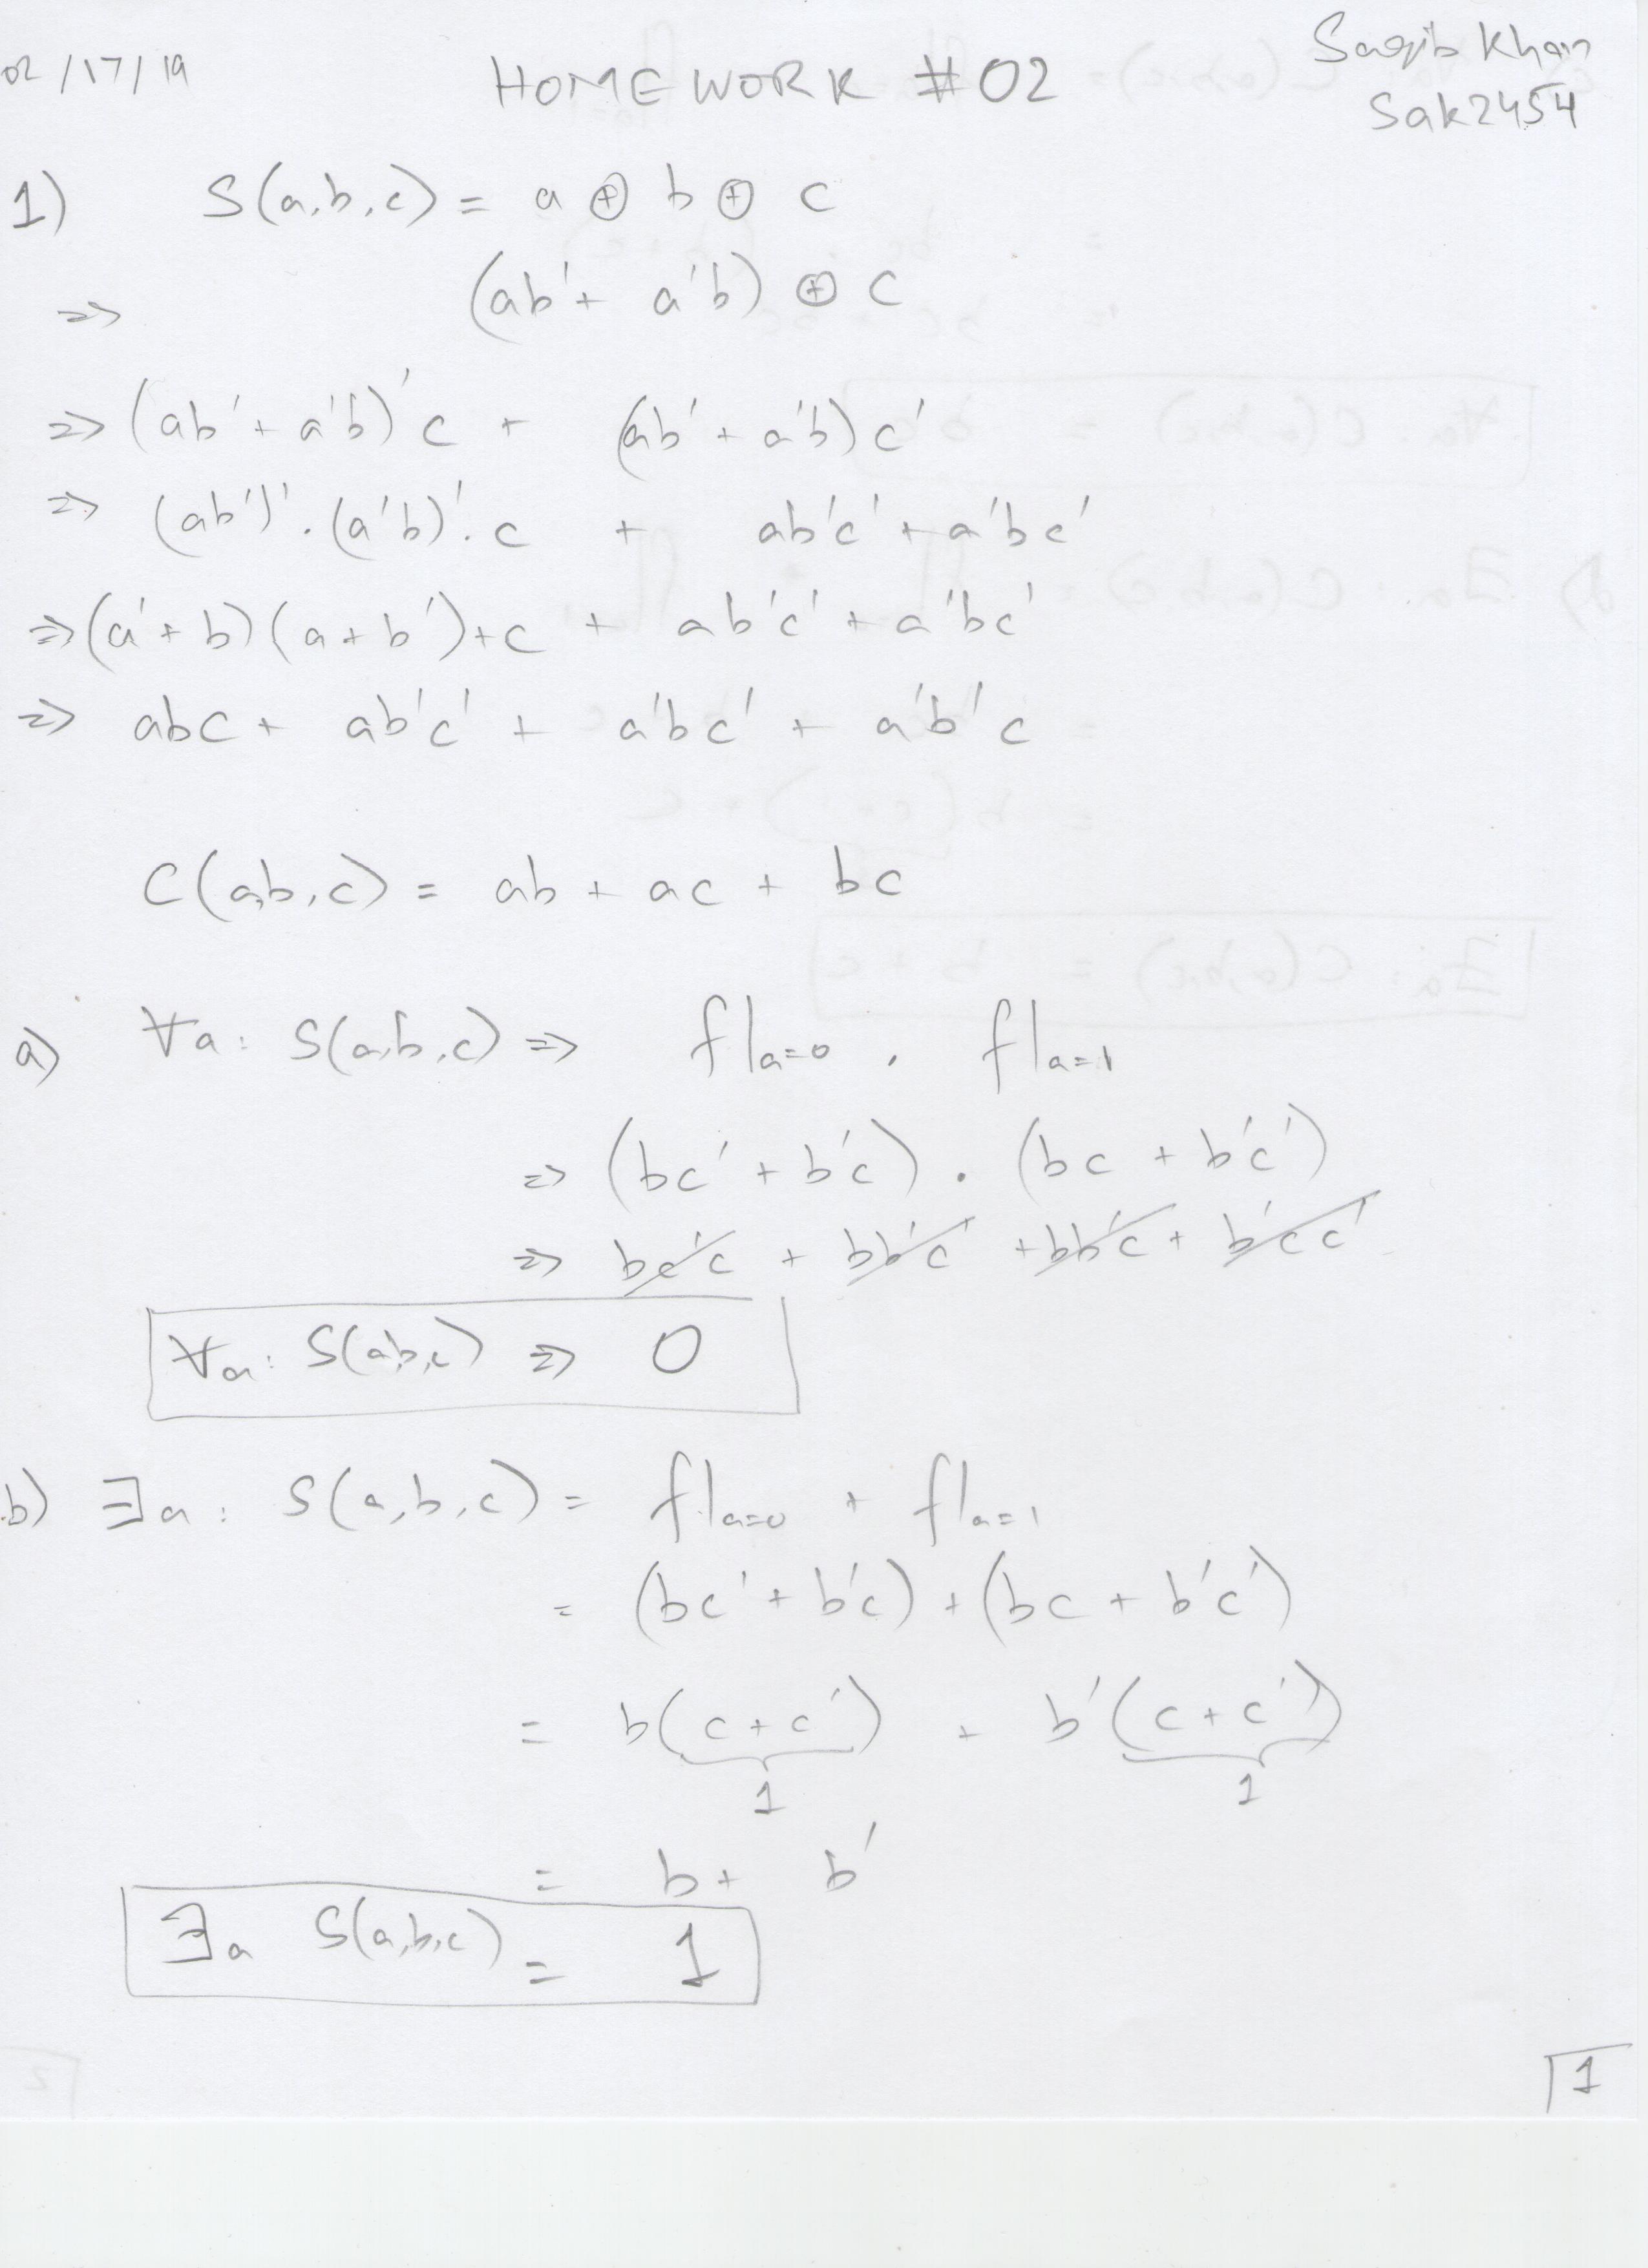 02/17/19
HOMEWORK #02
Saqib Khan
Sak2454
1) S(a,b,c) = a ⊕ b ⊕ c
=> (ab' + a'b) ⊕ c
=> (ab' + a'b)'c + (ab' + a'b)c'
=> (ab')'.(a'b)'.c + ab'c' + a'bc'
=> (a' + b)(a + b')+c + ab'c' + a'bc'
=> abc + ab'c' + a'bc' + a'b'c
C(a,b,c) = ab + ac + bc
a) ∀a: S(a,b,c) => f|a=0 . f|a=1
=> (bc' + b'c) . (bc + b'c')
=> bc'c + bb'c' + bb'c + b'cc'
∀a: S(a,b,c) => 0
b) ∃a: S(a,b,c) = f|a=0 + f|a=1
= (bc' + b'c) + (bc + b'c')
= b(c + c') + b'(c + c')
1 1
= b + b'
∃a S(a,b,c) = 1
1